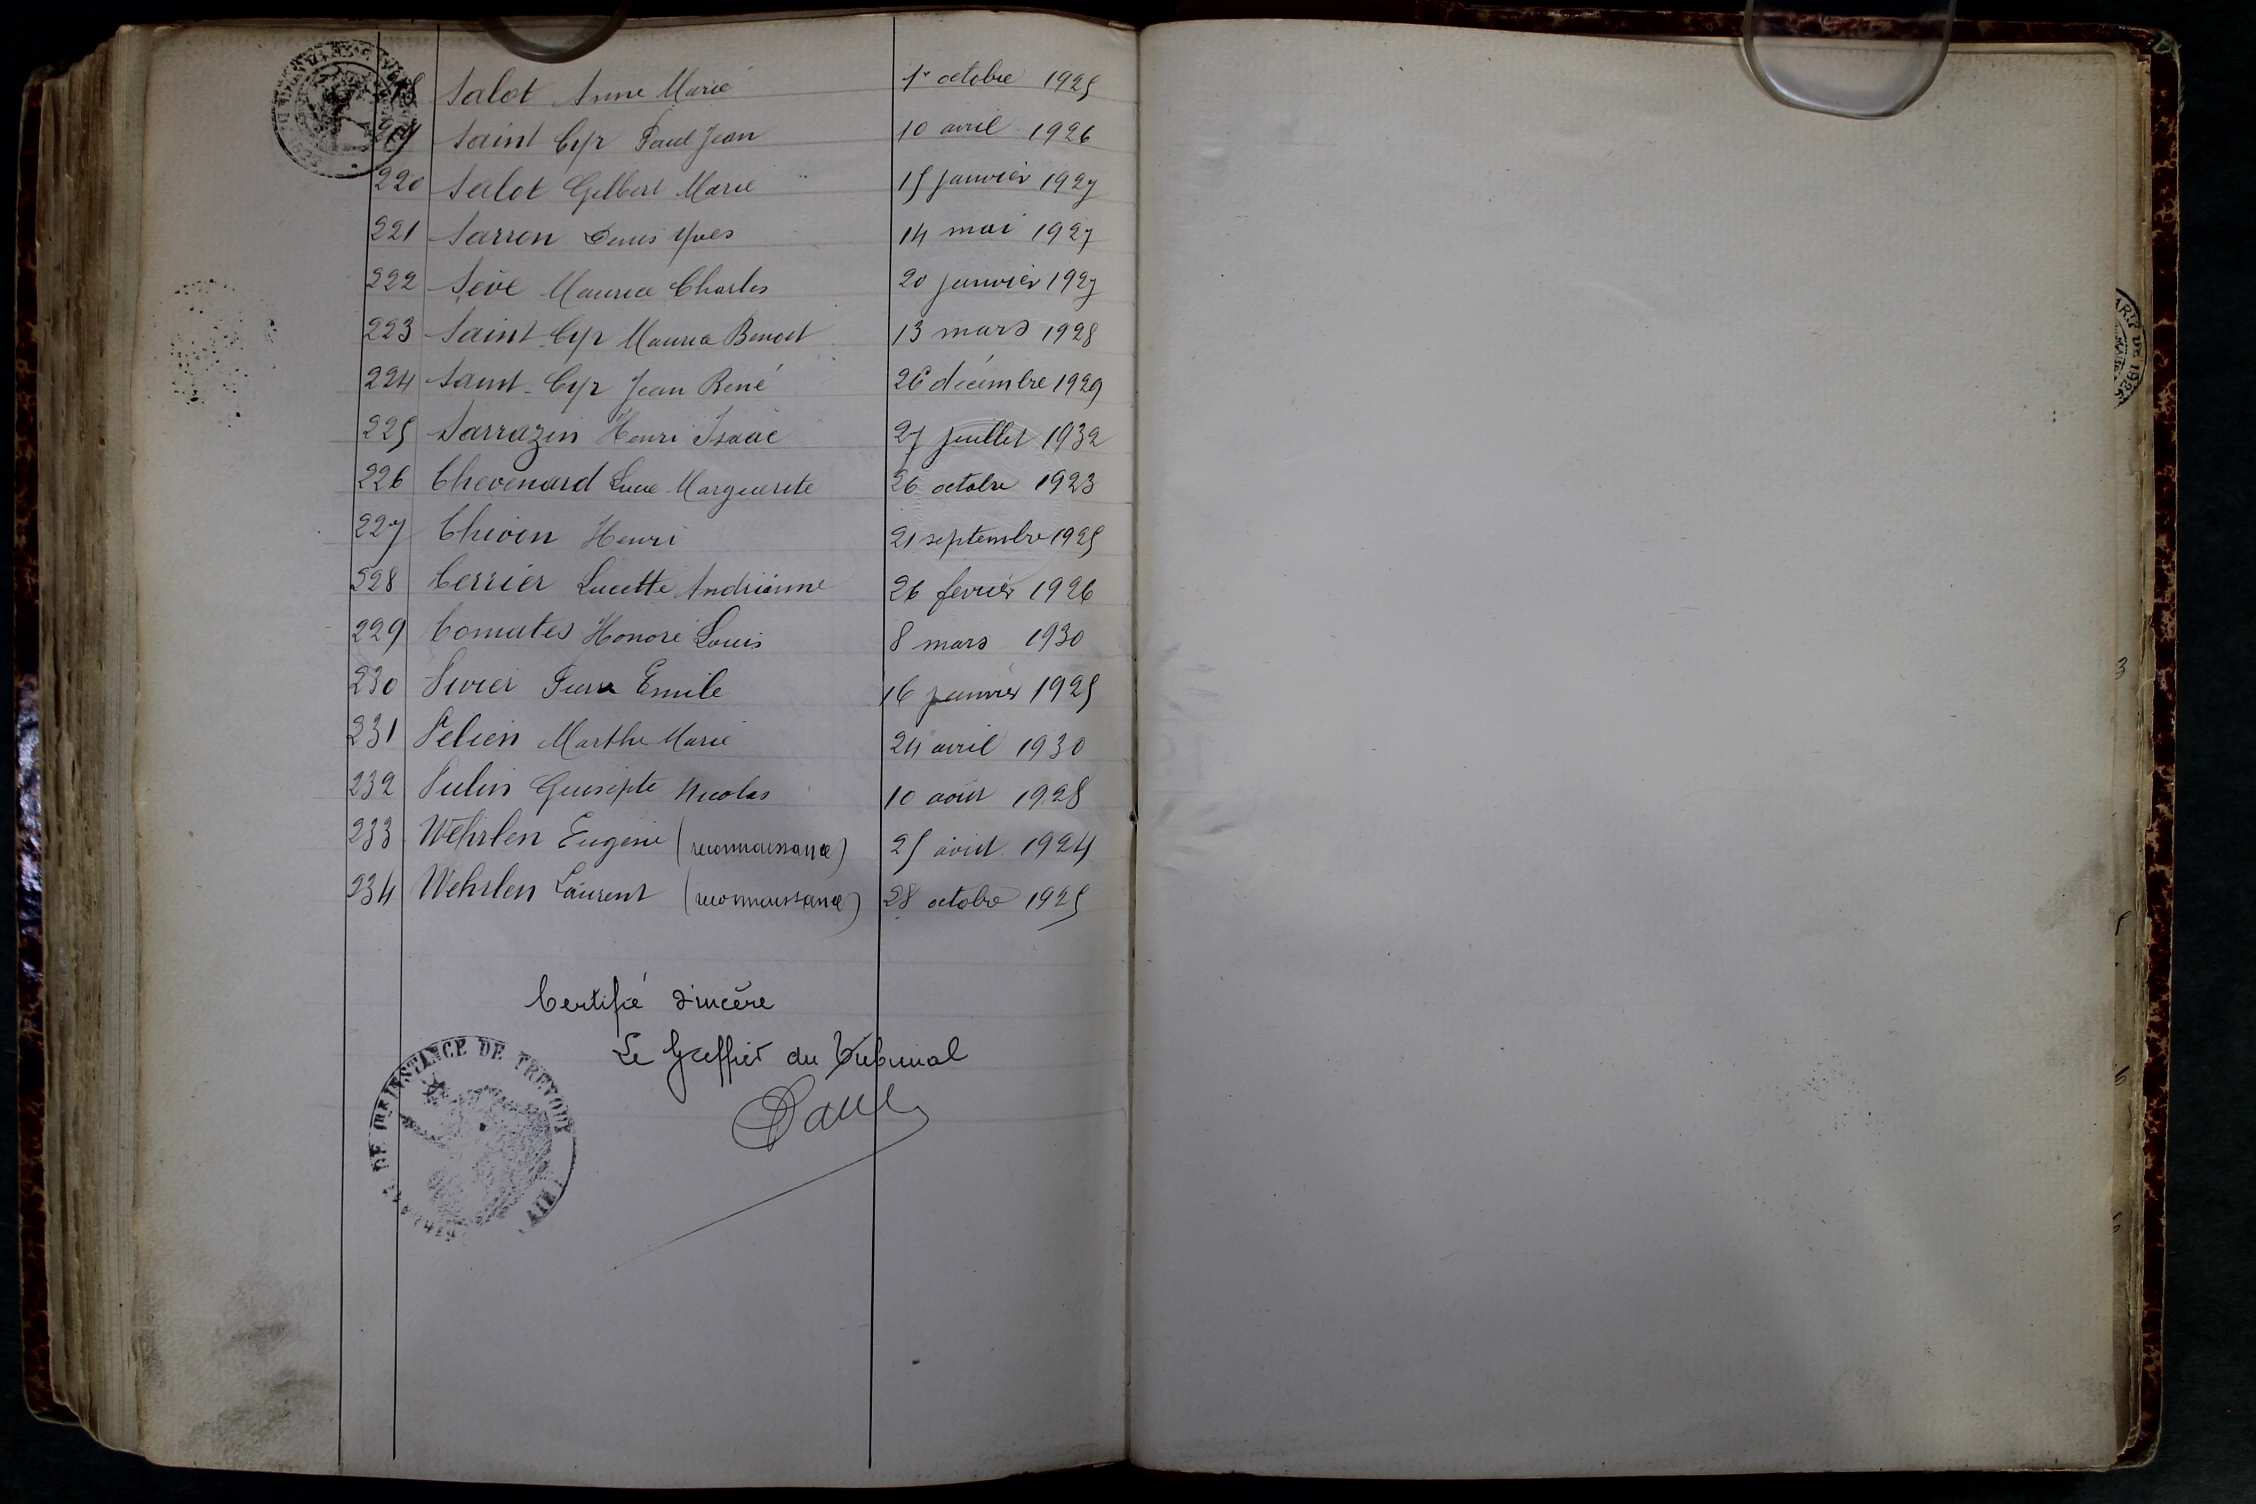 218 Salot Anne Marie 1r octobre 1925
219 Saint Cyr Paul Jean 10 avril 1926
220 Salot Gilbert Marie 15 janvier 1927
221 Sarron Denis Yves 14 mai 1927
222 Sève Maurice Charles 20 janvier 1927
223 Saint-Cyr Maurice Benoit 13 mars 1928
224 Saint-Cyr Jean René 26 décembre 1929
225 Sarrazin Henri Isaac 27 juillet 1932
226 Chevenard Lucie Marguerite 26 octobre 1923
227 Chivon Henri 21 septembre 1925
228 Cerrier Lucette Andrienne 26 fevrier 1926
229 Comates Honoré Louis 8 mars 1930
230 Pierre Emile 16 janvier 1925
231 Marthe Marie 24 avril 1930
232 Nicolas 10 août 1928
233 Wehrlen Eugène (reconnaissance) 25 août 1924
234 Wehrlen Laurent (reconnaissance) 28 octobre 1925
Certifié sincère
Le Greffier du Tribunal
DE INSTANCE DE TREVOUX